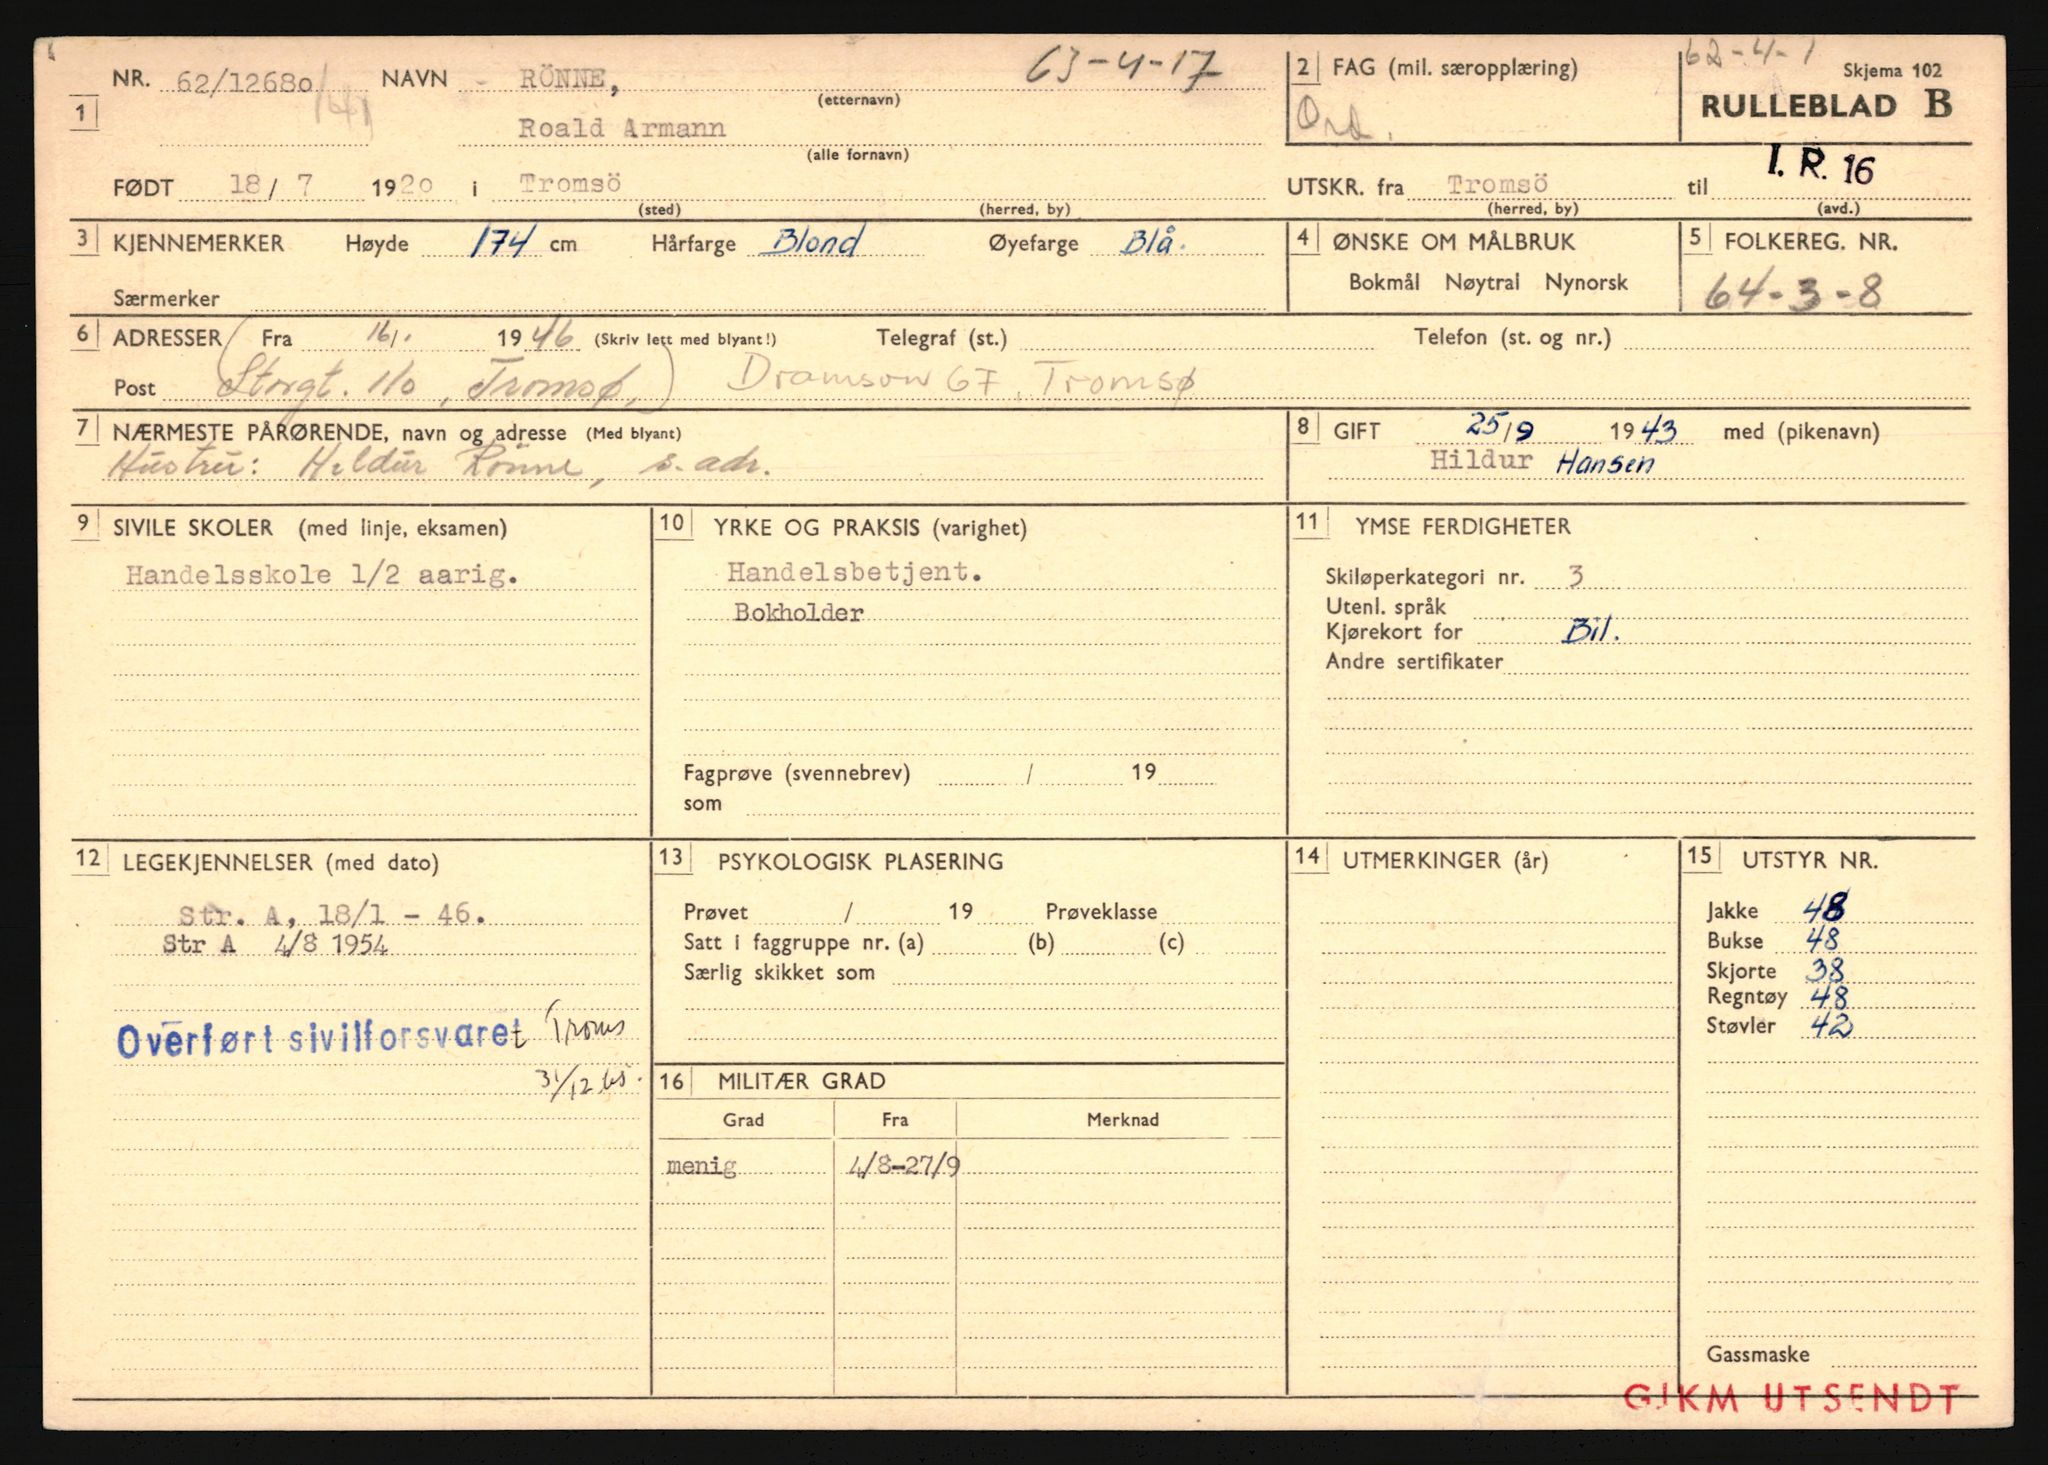 63-4-17
62-4-1
NR. 62/12680/41 NAVN - RÖNNE,
(etternavn)
2 FAG (mil. særopplæring)
Skjema 102
1
Ord.
RULLEBLAD B
Roald Armann
(alle fornavn)
I. R. 16
FØDT 18/7 1920 i Tromsö
(sted) (herred, by)
UTSKR. fra Tromsö til
(herred, by) (avd.)
3 KJENNEMERKER Høyde 174 cm Hårfarge Blond Øyefarge Blå.
Særmerker
4 ØNSKE OM MÅLBRUK
Bokmål Nøytral Nynorsk
5 FOLKEREG. NR.
64-3-8
6 ADRESSER (Fra 16/1. 1946 (Skriv lett med blyant!) Telegraf (st.) Telefon (st. og nr.)
Post Storgt. 110, Tromsø,) Dramsvn 67, Tromsø
7 NÆRMESTE PÅRØRENDE, navn og adresse (Med blyant)
Hustru: Hildur Rönne, s. adr.
8 GIFT 25/9 1943 med (pikenavn)
Hildur Hansen
9 SIVILE SKOLER (med linje, eksamen)
Handelsskole 1/2 aarig.
10 YRKE OG PRAKSIS (varighet)
Handelsbetjent.
Bokholder
Fagprøve (svennebrev) / 19
som
11 YMSE FERDIGHETER
Skiløperkategori nr. 3
Utenl. språk
Kjørekort for Bil.
Andre sertifikater
12 LEGEKJENNELSER (med dato)
Str. A, 18/1 - 46.
Str A 4/8 1954
Overført sivilforsvaret Troms
31/12 65.
13 PSYKOLOGISK PLASERING
Prøvet / 19 Prøveklasse
Satt i faggruppe nr. (a) (b) (c)
Særlig skikket som
14 UTMERKINGER (år)
15 UTSTYR NR.
Jakke 48
Bukse 48
Skjorte 38
Regntøy 48
Støvler 42
16 MILITÆR GRAD
Grad Fra Merknad
menig 4/8-27/9
Gassmaske
GJKM UTSENDT